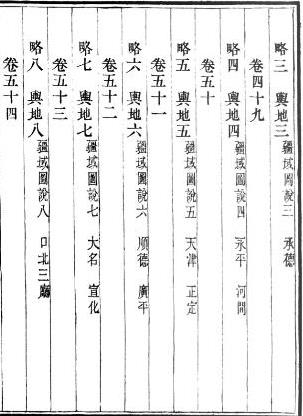 略三 輿地三 疆域圖說三 承德
卷四十九
略四 輿地四 疆域圖說四 永平 河間
卷五十
略五 輿地五 疆域圖說五 天津 正定
卷五十一
略六 輿地六 疆域圖說六 順德 廣平
卷五十二
略七 輿地七 疆域圖說七 大名 宣化
卷五十三
略八 輿地八 疆域圖說八 口北三廳
卷五十四